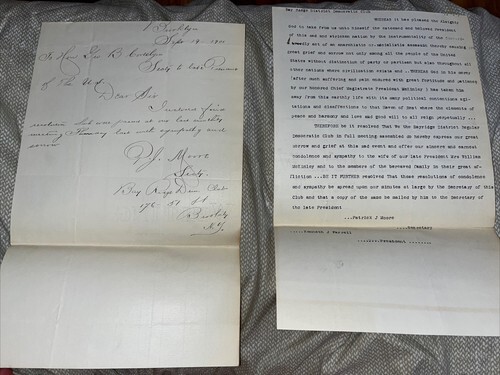 Brooklyn
Sept 19 - 1901
To Hon. Geo B. Cortelyou
Secty to late President
of the U.S.
Dear Sir
Inclosed find
resolution that was passed at our last monthly
meeting Thursday last with sympathy and
sorrow
P. J. Moore
Secty.
Bay Ridge Dem Club
51 St
Brooklyn
N.Y.
Bay Ridge District Democratic Club
WHEREAS it has pleased the Almighty
God to take from us unto himself the esteemed and beloved President
of this god and kindness nation by the instrumentality of the
act of an anarchistic assassin thereby causing
great grief and sorrow not only among all the people of the United
States without distinction of party or partisan but also throughout all
other nations where civilization exists and ...WHEREAS God in his mercy
(after much suffering and pain endured with great fortitude and patience
by our honored Chief Magistrate President McKinley) has taken him
away from this earthly life with its many political contentions agi-
tations and disaffections to that Haven of Rest where the elements of
peace and harmony and love and good will to all reign perpetually ...
THEREFORE be it resolved That We the Bayridge District Regular
Democratic Club in full meeting assembled do hereby express our great
sorrow and grief at this sad event and offer our sincere and earnest
condolence and sympathy to the wife of our late President Mrs William
McKinley and to the members of the bereaved family in their great af-
fliction ...BE IT FURTHER resolved That these resolutions of condolence
and sympathy be spread upon our minutes at large by the Secretary of this
Club and that a copy of the same be mailed by him to the Secretary of
the late President
...Patrick J Moore
...Secretary
...President